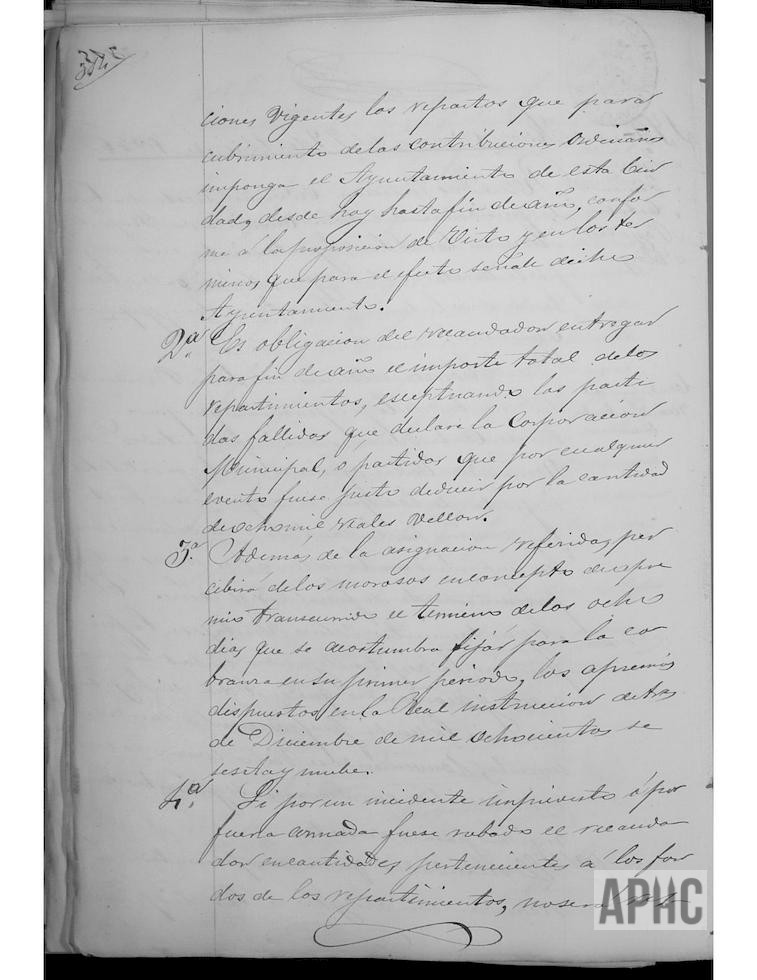 ciones vigentes los repartos que para
cubrimiento de las contribuciones ordinarias
imponga el Ayuntamiento de esta Ciu
dad, desde hoy hasta fin de año, confor
me á la proposicion de Visto y en los ter
minos que para el efecto señale dicho
Ayuntamiento.
2.a Es obligacion del recaudador entregar
para fin de año el importe total de los
repartimientos, esceptuando las parti
das fallidas que declare la Corporacion
Municipal, o partidas que por cualquier
evento fuese justo deducir por la cantidad
de ocho mil reales vellon.
3.a Además de la asignacion referida, per
cibirá de los morosos en concepto de apre
mio transcurrido el termino de los ocho
dias que se acostumbra fijár para la co
branza en su primer periodo, los apremios
dispuestos en la Real instruccion de tres
de Diciembre de mil ochocientos se
sesta y nuebe.
4.a Si por un incidente imprevisto ó por
fuerza armada fuese robado el recauda
dor en cantidades pertenecientes á los fon
dos de los repartimientos, no será
APHC